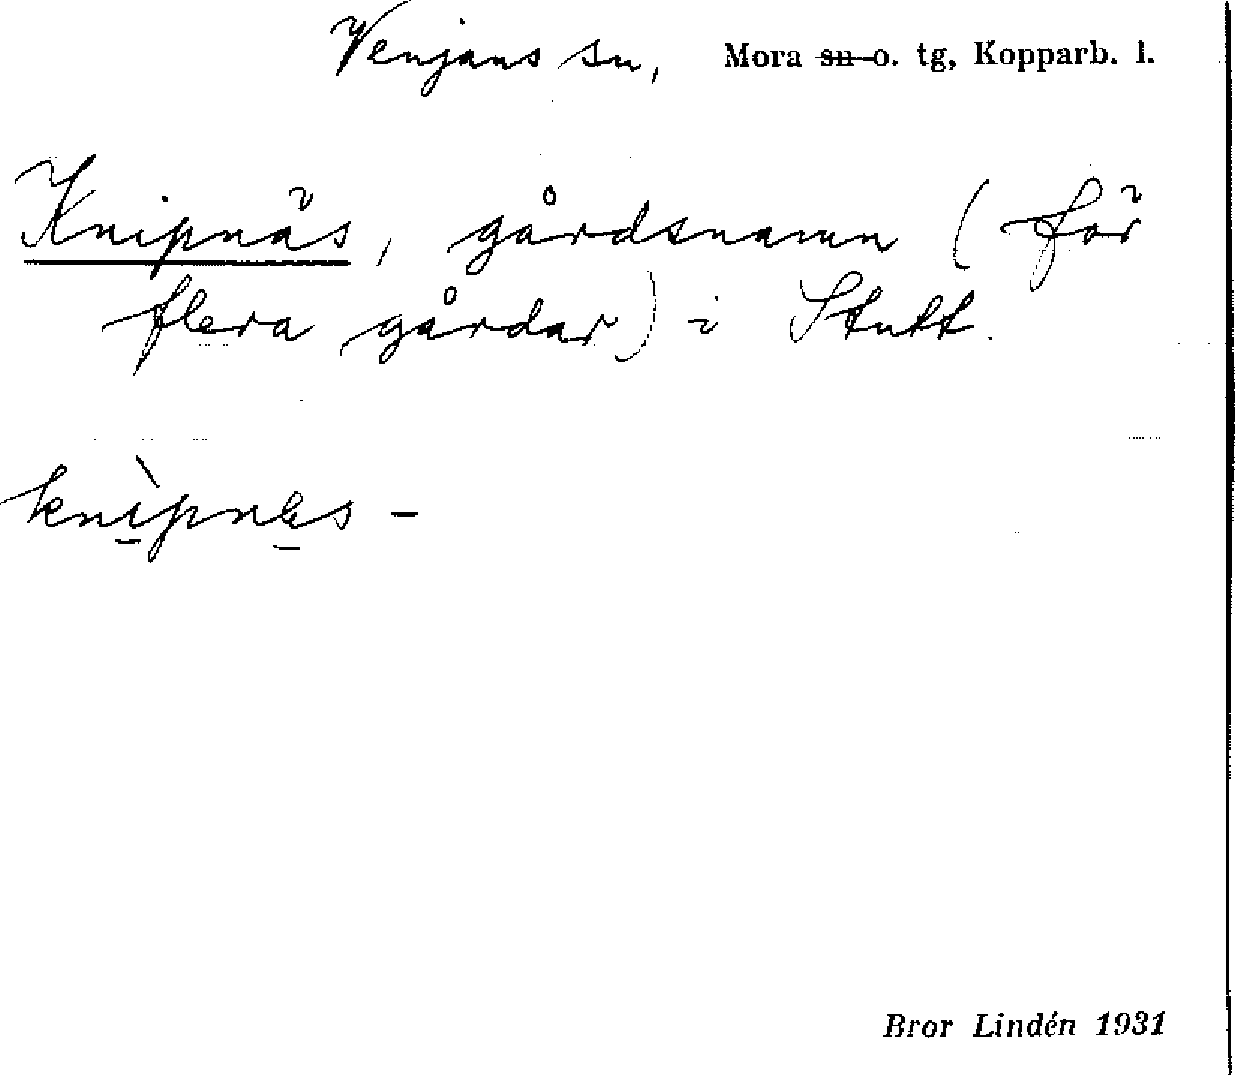 Venjans sn, Mora sn o. tg, Kopparb. l.
Knipnäs, gårdsnamn (för
flera gårdar) i Stutt.
knìpnes -
Bror Lindén 1931